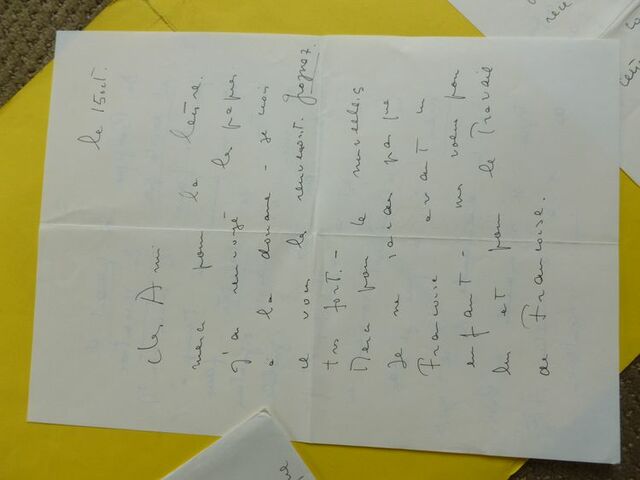 le 15 oct.
Cher Ami
merci pour la lettre.
J'ai renvoyé les papiers
à la douane - je crois
vous les renverront.
très fort. -
Merci pour le nouvelles
Je ne savais pas que
Francoise avait un
enfant - mes voeux pour
lui et pour le Travail
de Francoise.